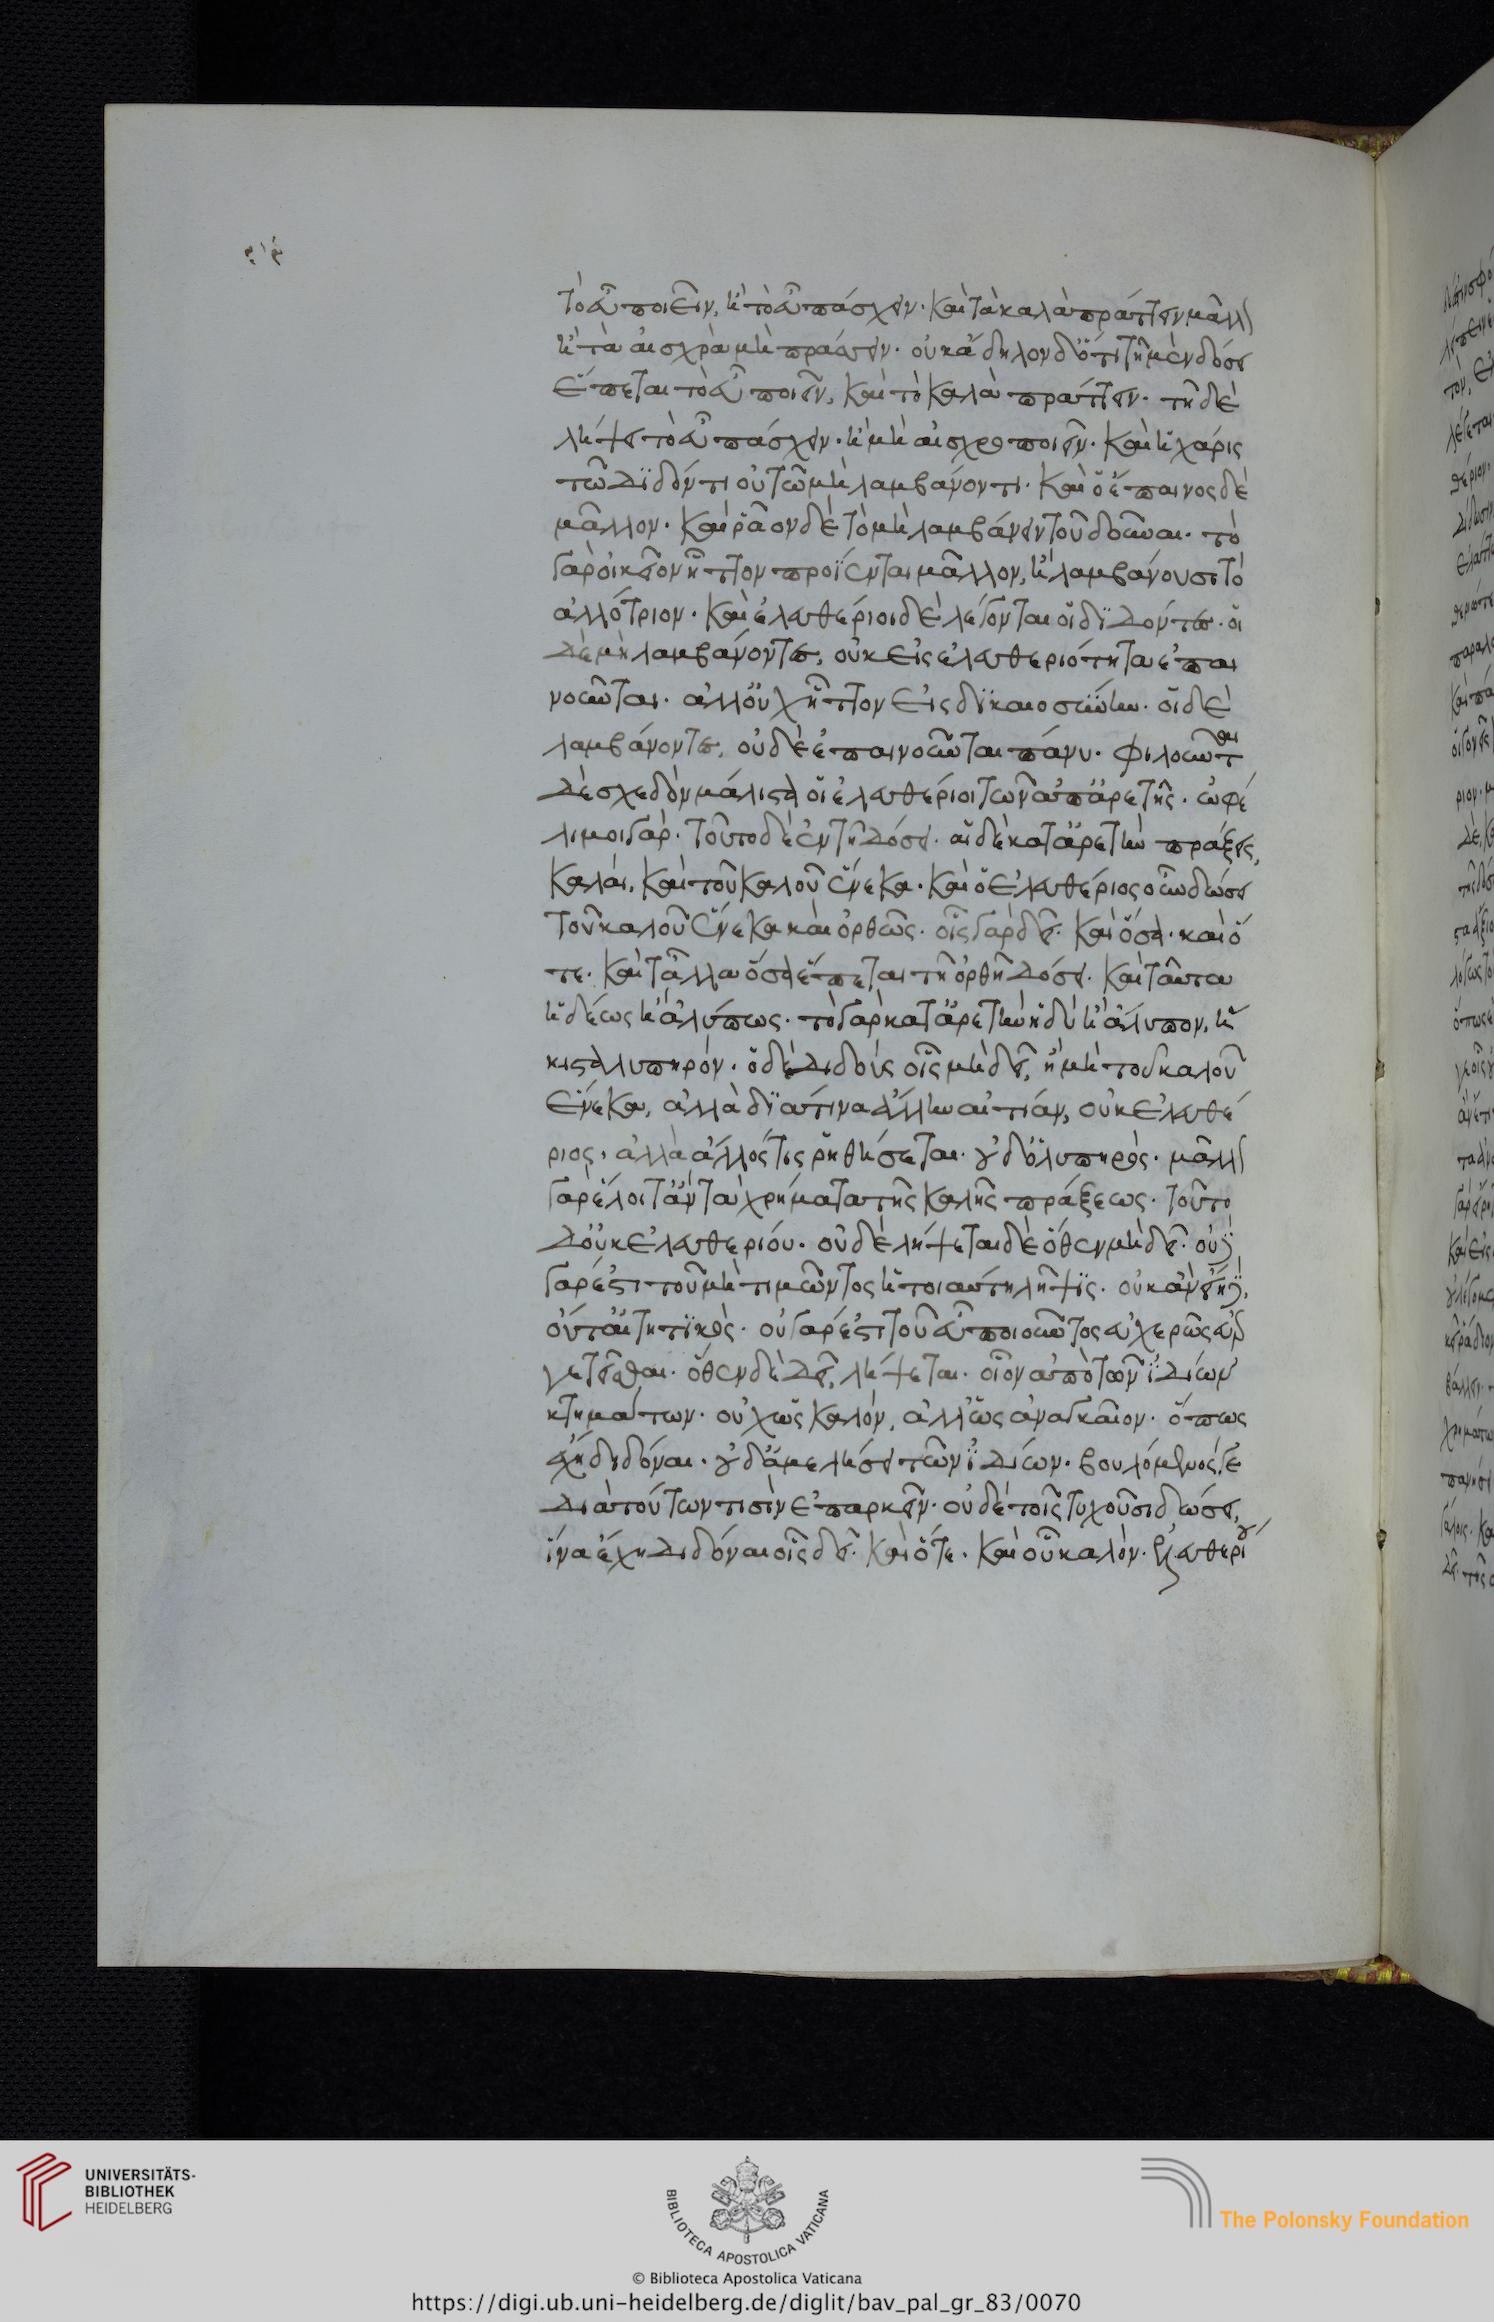 τὸ εὖ ποιεῖν, ἢ τὸ εὖ πάσχειν· καὶ τὰ καλὰ πράττειν μᾶλλ
ἢ τὰ αἰσχρὰ μὴ πράττειν· οὐκ ἄδηλον δ' ὅτι τῆ μὲν δόσει
ἕπεται τὸ εὖ ποιεῖν, καὶ τὸ καλὰ πράττειν· τῆ δὲ
λήψει τὸ εὖ πάσχειν· ἢ μὴ αἰσχροποιεῖν· καὶ ἡ χάρις
τῶ διδόντι οὐ τῶ μὴ λαμβάνοντι· καὶ ὁ ἔπαινος δὲ
μᾶλλον· καὶ ῥᾶον δὲ τὸ μὴ λαμβάνειν τοῦ δοῦναι· τὸ
γὰρ οἰκεῖον ἧττον προΐενται μᾶλλον, ἢ λαμβάνουσι τὸ
ἀλλότριον· καὶ ἐλευθέριοι δὲ λέγονται οἱ διδόντες· οἱ
δὲ μὴ λαμβάνοντες, οὐκ εἰς ἐλευθεριότητα ἐπαι
νοῦνται· ἀλλ' οὐχ ἧττον εἰς δικαιοσύνην· οἱ δὲ
λαμβάνοντες, οὐδὲ ἐπαινοῦνται πάνυ· φιλοῦνται
δὲ σχεδὸν μάλιστα οἱ ἐλευθέριοι τῶν ἀπ' ἀρετῆς· ὠφέ
λιμοι γάρ· τοῦτο δὲ ἐν τῆ δόσει· αἱ δὲ κατ' ἀρετὴν πράξεις,
καλαί, καὶ τοῦ καλοῦ ἕνεκα· καὶ ὁ ἐλευθέριος οὖν δώσει
τοῦ καλοῦ ἕνεκα καὶ ὀρθῶς· οἷς γὰρ δεῖ· καὶ ὅσα· καὶ ὅ
τε· καὶ τἆλλα ὅσα ἕπεται τῆ ὀρθῆ δόσει· καὶ ταῦτα
ἡδέως ἢ ἀλύπως· τὸ γὰρ κατ' ἀρετὴν ἡδὺ ἢ ἄλυπον, ἥ
κιστα λυπηρόν· ὁ δὲ διδοὺς οἷς μὴ δεῖ, ἢ μὴ τοῦ καλοῦ
ἕνεκα, ἀλλὰ διά τινα ἄλλην αἰτίαν, οὐκ ἐλευθέ
ριος, ἀλλὰ ἄλλός τις ῥηθήσεται· οὐδ' ὁ λυπηρός· μᾶλλ
γὰρ ἕλοιτ' ἂν τὰ χρήματα τῆς καλῆς πράξεως· τοῦτο
δ' οὐκ ἐλευθερίου· οὐδὲ λήψεται δὲ ὅθεν μὴ δεῖ· οὐ
γάρ ἐστι τοῦ μὴ τιμῶντος ἡ τοιαύτη λῆψις· οὐκ ἂν εἴη,
οὐτ' αἰτητικός· οὐ γάρ ἐστι τοῦ εὖ ποιοῦντος εὐχερῶς εὐερ
γετεῖσθαι· ὅθεν δὲ δεῖ, λήψεται· οἷον ἀπὸ τῶν ἰδίων
κτημάτων· οὐχ ὡς καλόν, ἀλλ' ὡς ἀναγκαῖον· ὅπως
ἔχη διδόναι· οὐδ' ἀμελήσει τῶν ἰδίων· βουλόμενός γε
διὰ τούτων τισὶν ἐπαρκεῖν· οὐδὲ τοῖς τυχοῦσι δώσει,
ἵνα ἔχη διδόναι οἷς δεῖ· καὶ ὅτε· καὶ οὗ καλόν· ἐλευθερίου
UNIVERSITÄTS-
BIBLIOTHEK
HEIDELBERG
BIBLIOTECA APOSTOLICA VATICANA
The Polonsky Foundation
© Biblioteca Apostolica Vaticana
https://digi.ub.uni-heidelberg.de/diglit/bav_pal_gr_83/0070